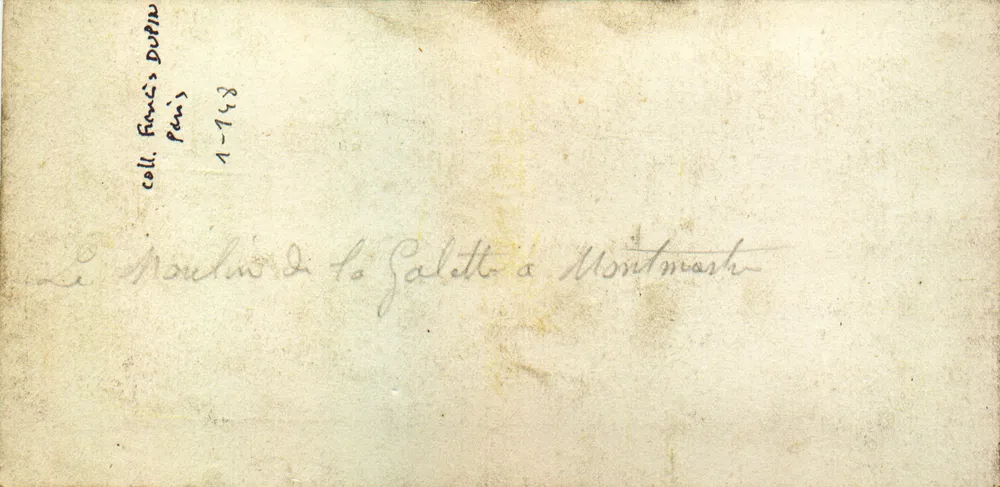 coll. Francis DUPIN
Paris
1-148
Le Moulin de la Galette a Montmartre